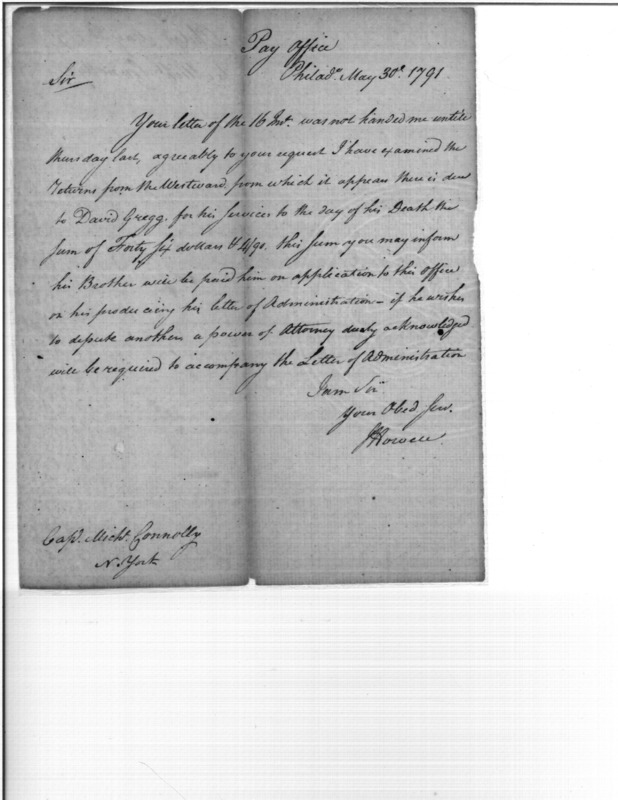 Pay Office
Philada. May 30th. 1791
Sir
Your letter of the 16 Inst. was not handed me untill
thursday last, agreably to your request I have examened the
returns from the Westward, from which it appears there is due
to David Gregg. for his services to the day of his Death the
sum of Forty six dollars & /90. this sum you may inform
his Brother will be paid him on application to this office
on his producing his letter of Administration - if he wishes
to depute another a power of Attorney duely acknowledged
will be required to accompany the Letter of Administration
I am Sir
Your Obed Ser.
JHowell
Capt. Michl. Connolly
N. York